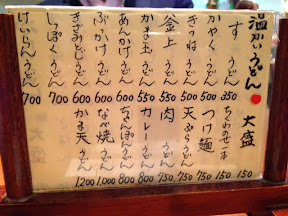 温かいうどん
すうどん 350
かやくうどん 500
きつねうどん 500
釜上うどん 550
かま玉うどん 550
あんかけうどん 600
ぶっかけうどん 600
きざみとじうどん 600
しっぽくうどん 700
けいらんうどん 700
大盛 150
ちくわのせ一本 150
つけ麺 750
天ぷらうどん 750
肉うどん 750
カレーうどん 800
ちゃんぽんうどん 800
なべ焼うどん 1,000
かま天うどん 1,200